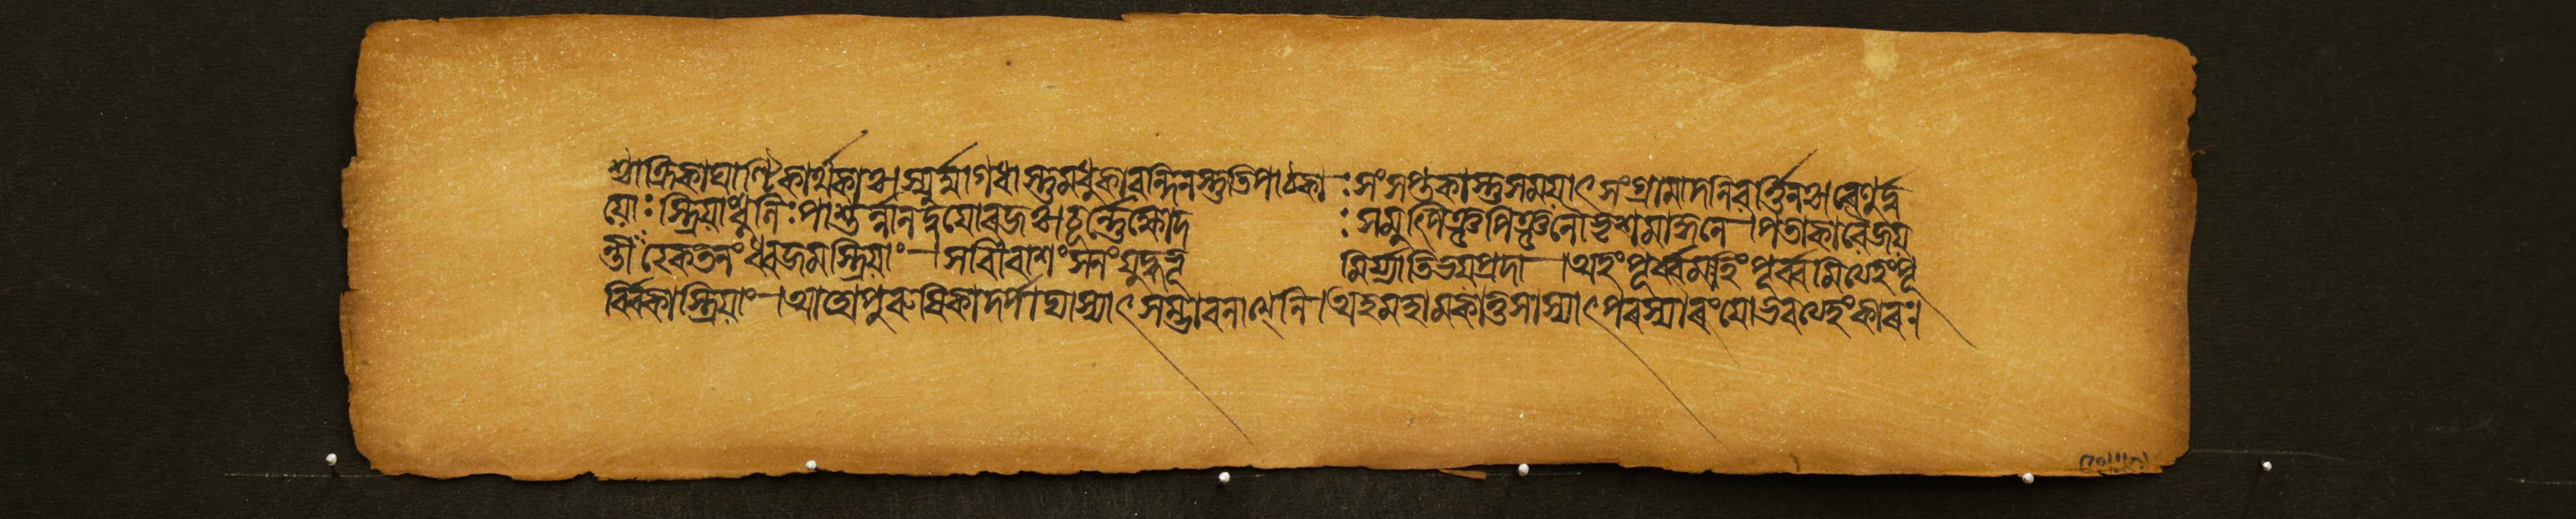 শ্চাক্রিকাঘাণ্টিকার্থকাঃ।স্যুর্ম্মাগধাস্তুমধুকাবন্দিনস্তুতিপাঠকা:সংসপ্তকাস্তুসময়াৎসংগ্রামাদনিবর্ত্তিনঃ।ৰেণুর্দ্ব
য়োঃস্ত্রিয়াংধুলিঃপাংশুর্ন্নানদ্বয়োৰজঃ।চূর্ন্নেক্ষোদ :সমুৎপিঞ্জপিঞ্জলৌভৃশমাকুলে।পতাকাবৈজয়
ন্তীস্যাৎকেতনংধ্বজমস্ত্রিয়াং।সাবীৰাশংসনংযুদ্ধভূ মির্য্যাতিভয়প্রদা।অহংপূর্ব্বমহংপূর্ব্বমিত্যেহংপূ
র্ব্বিকাস্ত্রিয়াং।আহোপুৰুষিকাদর্পাদ্যাস্যাৎসম্ভাবনাত্মনি।অহমহমিকাতুসাস্যাৎপৰস্পৰংযোভবত্যেহংকাৰঃ।